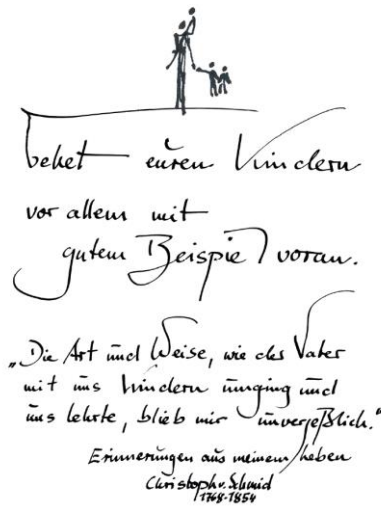 Gehet euren Kindern
vor allem mit
gutem Beispiel voran.
„Die Art und Weise, wie der Vater
mit uns Kindern umging und
uns lehrte, blieb mir unvergeßlich."
Erinnerungen aus meinem Leben
Christoph v. Schmid
1768-1854